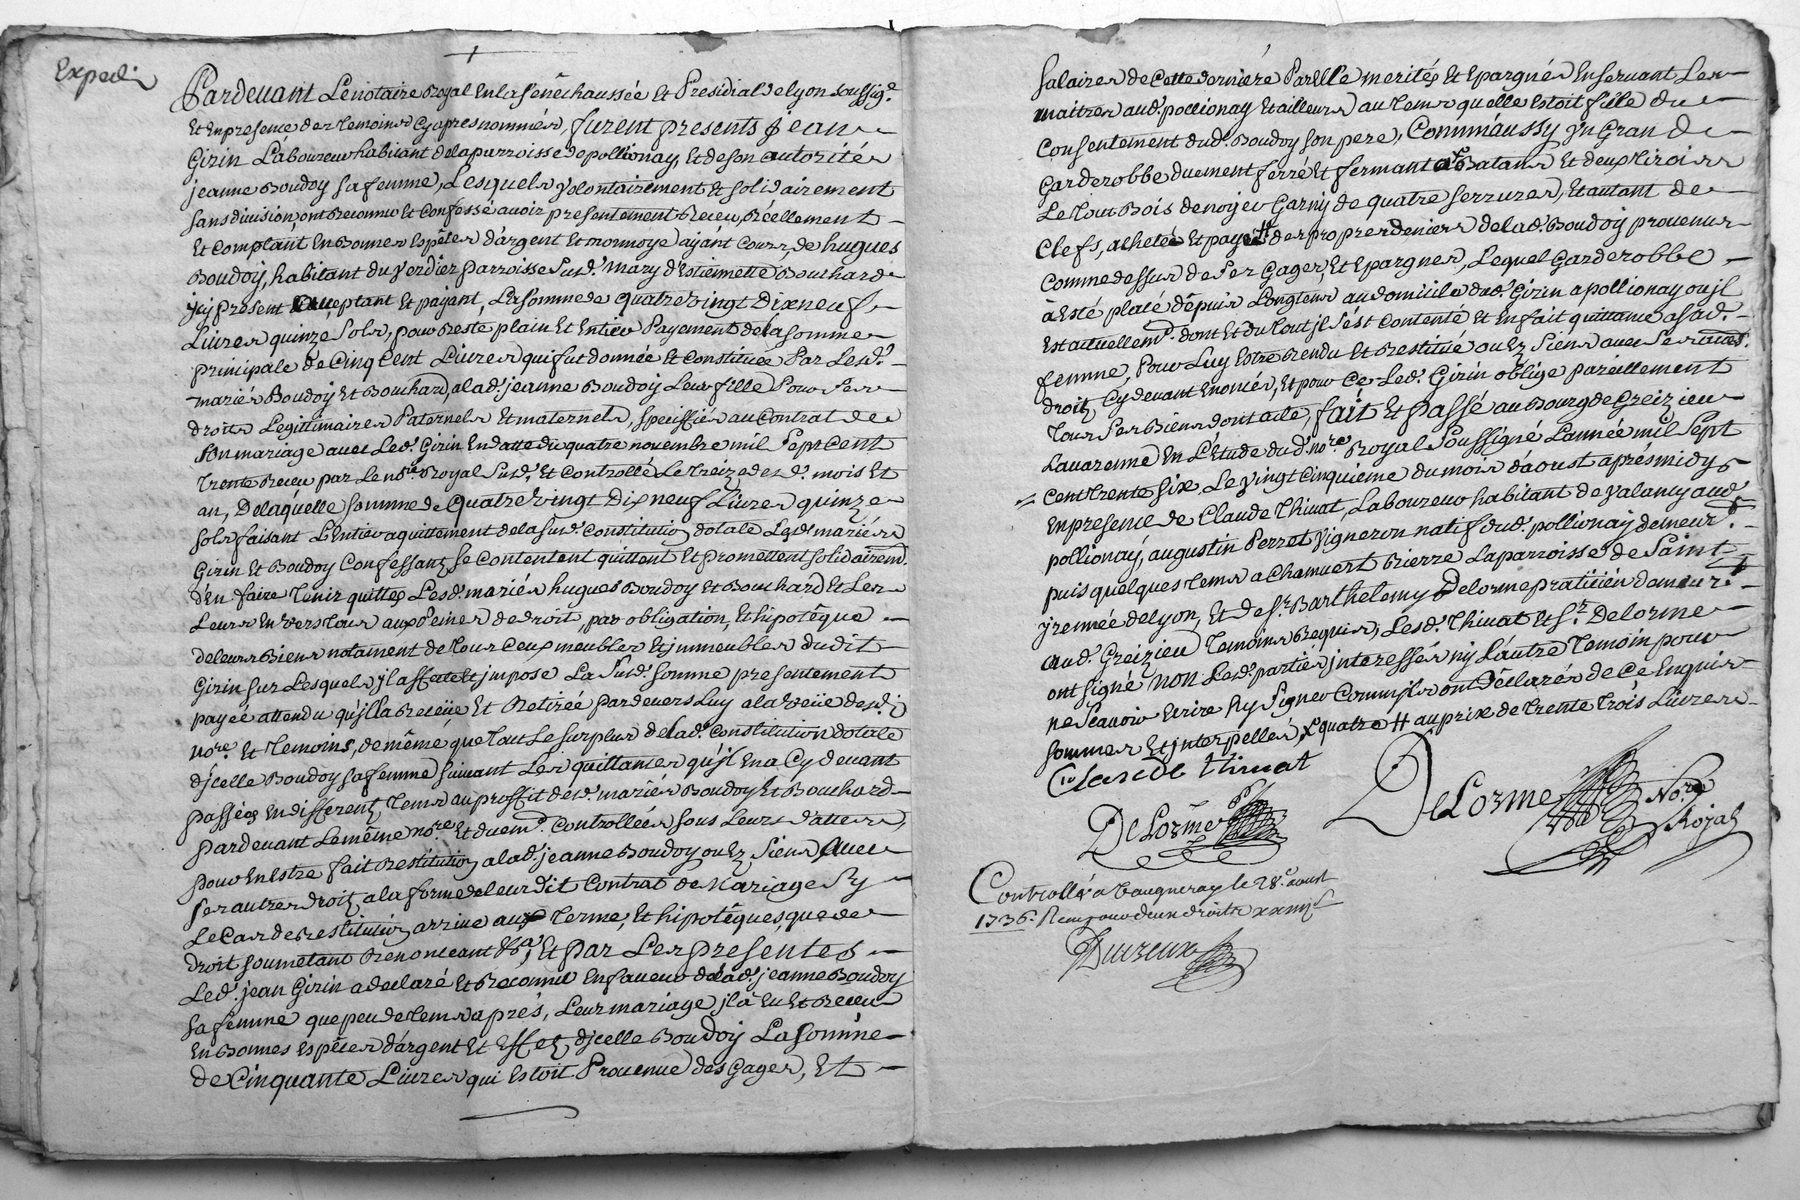 Expedié
Pardevant Le notaire Royal En la senêchaussée Et Presidial de lyon soussig.é
Et En presence des temoins Cy apres nommés, furent presents jean
Girin Laboureur habitant de la parroisse de pollionay, Et de son autorité
jeanne Boudoy sa femme, Lesquels volontairement Et solidairement
sans division, ont Reconnu Et Confessé avoir presentement Receu, Réellement
Et Comptant En Bonnes Espêces d'argent Et monnoye ayant Cours, de hugues
Boudoy, habitant du Verdier parroisse susd. mary d'Estiennette Bouchard
jcy present acceptant Et payant, La somme de quatre vingt dix neuf
Livres quinze sols, pour Reste plain Et Entier Payement de la somme
principale de Cinq Cent Livres qui fut donnée Et Constituée Par Lesd.
mariés Boudoy Et Bouchard, a lad. jeanne Boudoy Leur fille Pour ses
droits Legittimaires Paternels Et maternels, speciffiés au Contrat de
son mariage avec Led. Girin En datte du quatre novembre mil sept Cent
trente Receu par Le no.re Royal susd. Et Controllé Le treize desd. mois Et
an, De laquelle somme de quatre vingt Dix neuf Livres quinze
sols faisant L'Entier aquittement de la susd. Constitution dotale Lesd. mariés
Girin Et Boudoy Confessants se Contentent quittent Et promettent solidairem.
d'En faire tenir quittes Lesd. mariés hugues Boudoy Et Bouchard Et Les
Leurs Envers tous aux Peines de droit, par obligation, Et hipotêque
de leurs Biens notament de tous Ceux meubles Et jmmeubles dudit
Girin sur Lesquels jl affecte Et jmpose La susd. somme presentement
payée attendu qu'jl la Receüe Et Retirée pardevers Luy a la Veüe desd.
no.re Et temoins, de même que tout Le surplus de lad. Constitution dotale
d'jcelle Boudoy sa femme suivant Les quittances qu'jl En a Cy devant
passées En differents tems au proffit desd. mariés Boudoy Et Bouchard
pardevant Le même no.re Et duem. Controllées sous Leurs dattes,
pour En Estre fait Restitution a lad. jeanne Boudoy ou Ez siens avec
ses autres droits a la forme de leur dit Contrat de Mariage sy
Le Cas de Restitution arrive aux terme, Et hipotêques, que de
droit soumetant Renonceant &a, Et Par Les presentes
Led. jean Girin a declaré Et Reconnu En faveur de lad. jeanne Boudoy
sa femme que peu de tems aprés, Leur mariage jl a Eu Et Receu
En Bonnes Espêces d'argent Et Effets d'jcelle Boudoy La somme
de Cinquante Livres qui Estoit Provenue des Gages, Et
salaires de Cette derniére Par Elle merités Et Epargnés En servant Les
maitres aud. pollionay Et ailleurs au tems qu'elle Estoit fille du
Consentement dud. Boudoy son pere, Comm'aussy Un Gran de
Garderobbe duement ferré Et fermant a 4 Batans Et deux tiroirs
Le tout Bois de noyer Garny de quatre serrures, Et autant de
Clefs, achetée Et payée # des propres deniers de lad. Boudoy provenus
Comme dessus de ses Gages, Et Epargnes, Lequel Garderobbe
à Esté placé depuis Longtems au domicile dud. Girin a pollionay ou jl
Est actuellem. dont Et du tout jl s'est Contenté Et En fait quittance a sad.
femme, Pour Luy Estre Rendu Et Restitué ou Ez siens avec ses autres
droits Cy devant Enoncés, Et pour Ce Led. Girin oblige pareillement
tous ses Biens dont acte, fait Et passé au Bourg de Greizieu
Lavarenne En L'Etude dud. no.re Royal soussigné L'année mil sept
Cent trente six Le vingt Cinquiéme du mois d'aoust aprés midy
En presence de Claude thivat, Laboureur habitant de Valancy aud.
pollionay, augustin Perret Vigneron natif dud. pollionay demeur.t
puis quelques tems a Chamvert Pierre La parroisse de Saint
jrennée de lyon, Et de S.r Barthelemy Delorme praticien demeur.t
aud. Greizieu temoins Requis, Lesd. thivat Et S.r Delorme
ont signé Non Lesd. parties jnteressés ny L'autre temoin pour
ne sçavoir Ecrire ny signer Comm'jls ont Déclarés de Ce Enquis
sommés Et jnterpellés, X quatre # au prix de trente trois Livres
Claude thivat
DeLorme
DeLorme No.re Royal
Controllé a Vaugneray le 28.e aoust
1736. Reçu pour deux droits